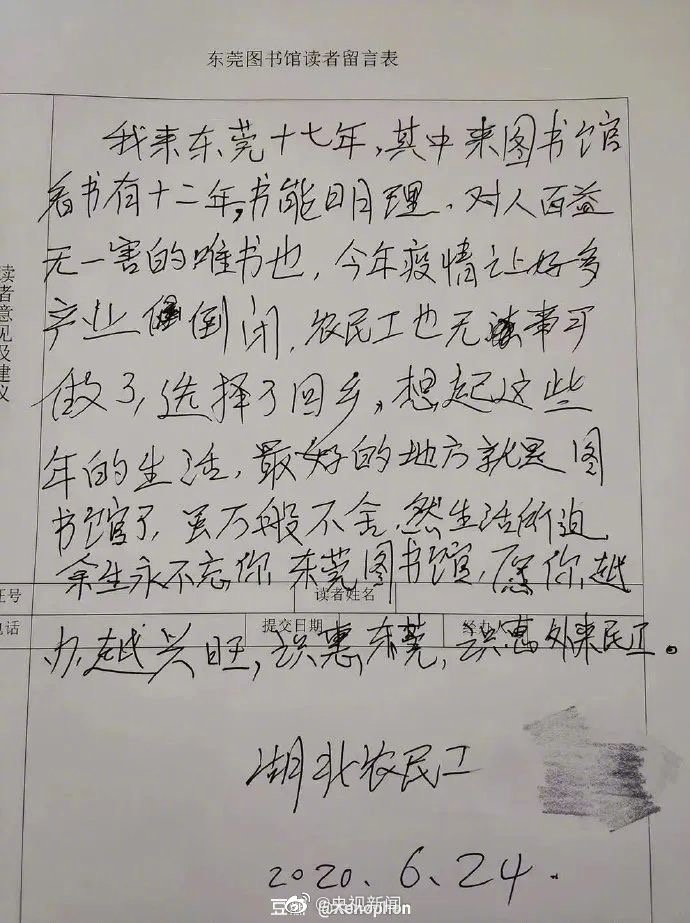 东莞图书馆读者留言表
读者意见及建议
我来东莞十七年,其中来图书馆
看书有十二年,书能明理,对人百益
无一害的唯书也,今年疫情让好多
产业倒闭,农民工也无事可
做了,选择了回乡,想起这些
年的生活,最好的地方就是图
书馆了,虽万般不舍,然生活所迫,
余生永不忘你,东莞图书馆,愿你越
证号 读者姓名
办越兴旺,识惠东莞,识惠外来民工。
电话 提交日期 经办人
湖北农民工
2020.6.24.
@央视新闻
豆瓣 @Xenophon